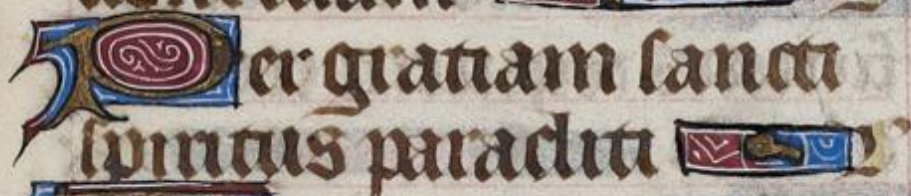 Per gratiam sancti
spiritus paracliti